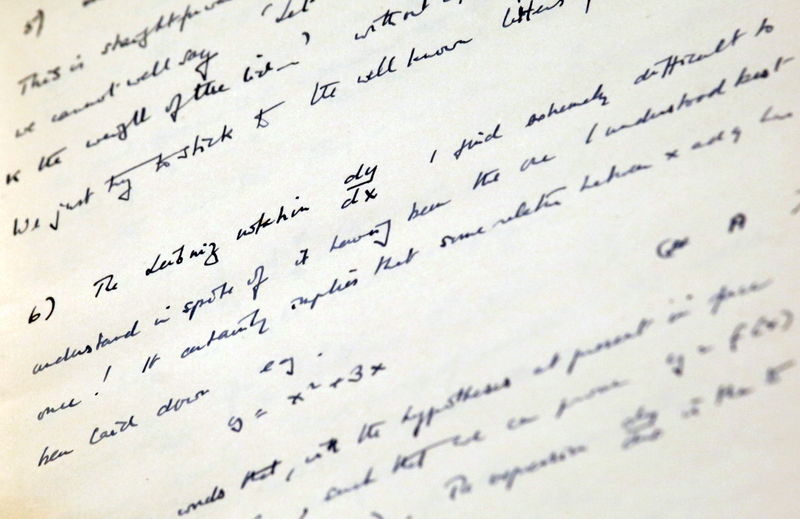 5)
This is straightforward
we cannot well say 'Let
is the weight of the lid—' without
We just try to stick to the well known letters
6) The Leibniz notation dy/dx I find extremely difficult to
understand in spite of it having been the one I understood best
once! It certainly implies that some relation between x and y has
been laid down eg.
y = x² + 3x
that, with the hypotheses at present in
, such that we can prove y = f(x)
The expression dy/dx is then